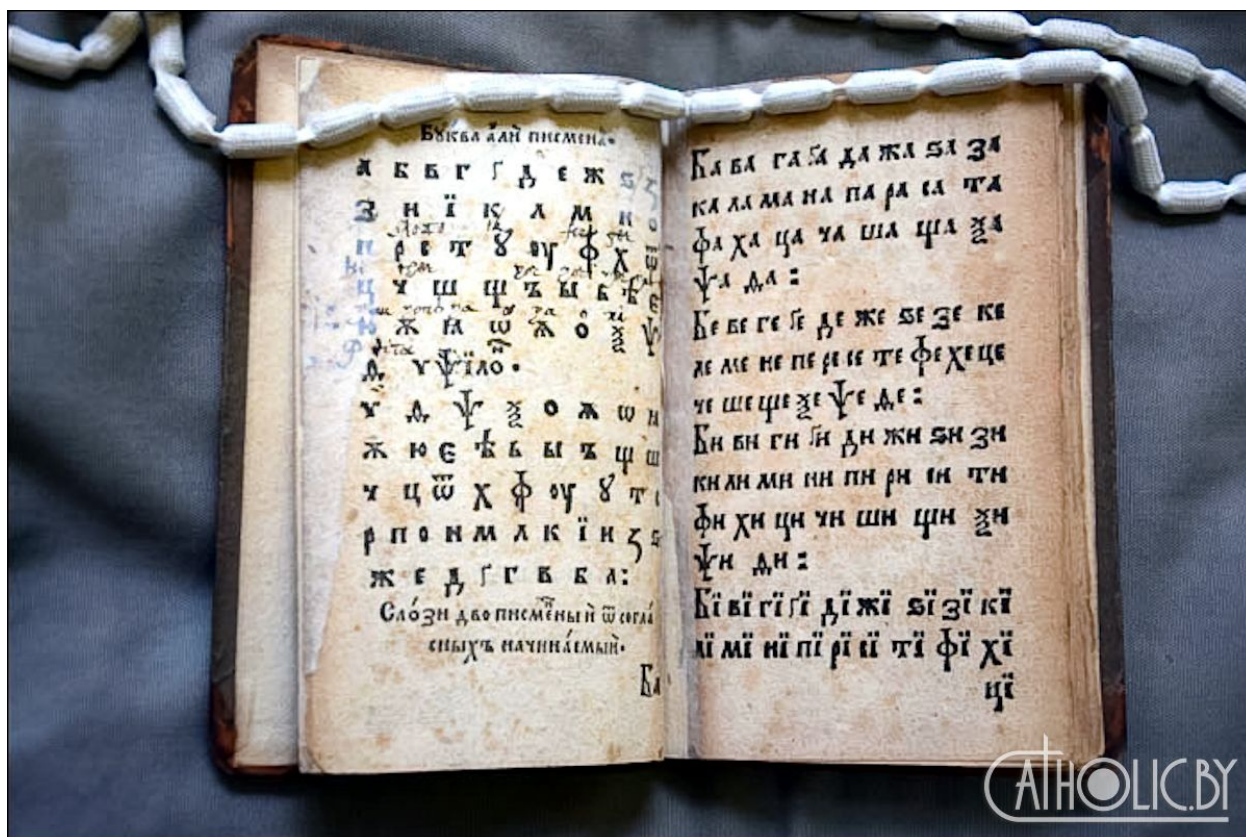 Бꙋ́ква а҆лѝ писмена̀.
а б в г ґ д е ж ѕ ꙁ
З и ї к л м н о
п р с т ꙋ оу ф х ѿ
ц ч ш щ ъ ы ь ѣ є
ю ѫ ꙗ ѡ ѧ о ѯ ѱ
ѳ ѵ Ѱїло.
ѵ ѳ ѱ ѯ о ѧ ѡ ꙗ
ѫ ю є ѣ ь ы ъ щ ш
ч ц ѿ х ф оу ꙋ т с
р п о н м л к ї и ꙁ ѕ
ж е д ґ г в б а:
Сло́зи двописме́ный ѿ согла́
сныхъ начина́емый.
Ба
Ба ва га ґа да жа ѕа за
ка ла ма на па ра са та
фа ха ца ча ша ща ѯа
ѱа ѳа :
Бе ве ге ґе де же ѕе зе ке
ле ме не пе ре се те фе хе це
че ше ще ѯе ѱе ѳе :
Би ви ги ґи ди жи ѕи зи
ки ли ми ни пи ри си ти
фи хи ци чи ши щи ѯи
ѱи ѳи :
Бї вї гї ґї дї жї ѕї зї кї
лї мї нї пї рї сї тї фї хї
цї
CATHOLIC.BY